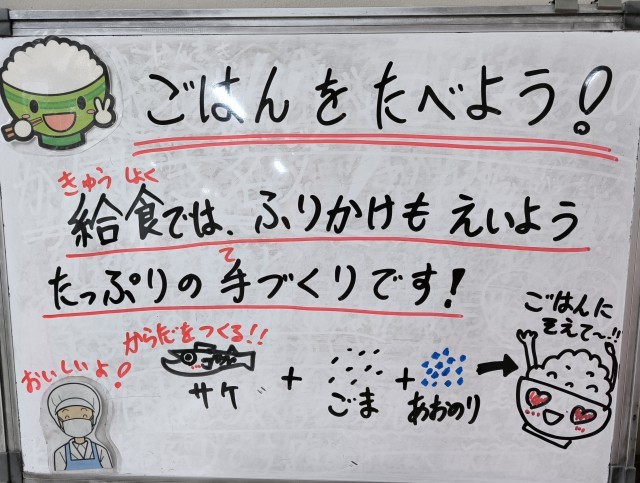 ごはんをたべよう!
きゅうしょく
給食では、ふりかけもえいよう
て
たっぷりの手づくりです!
ごはんに
そえて〜!!
からだをつくる!!
おいしいよ!
サケ + ごま + あおのり →